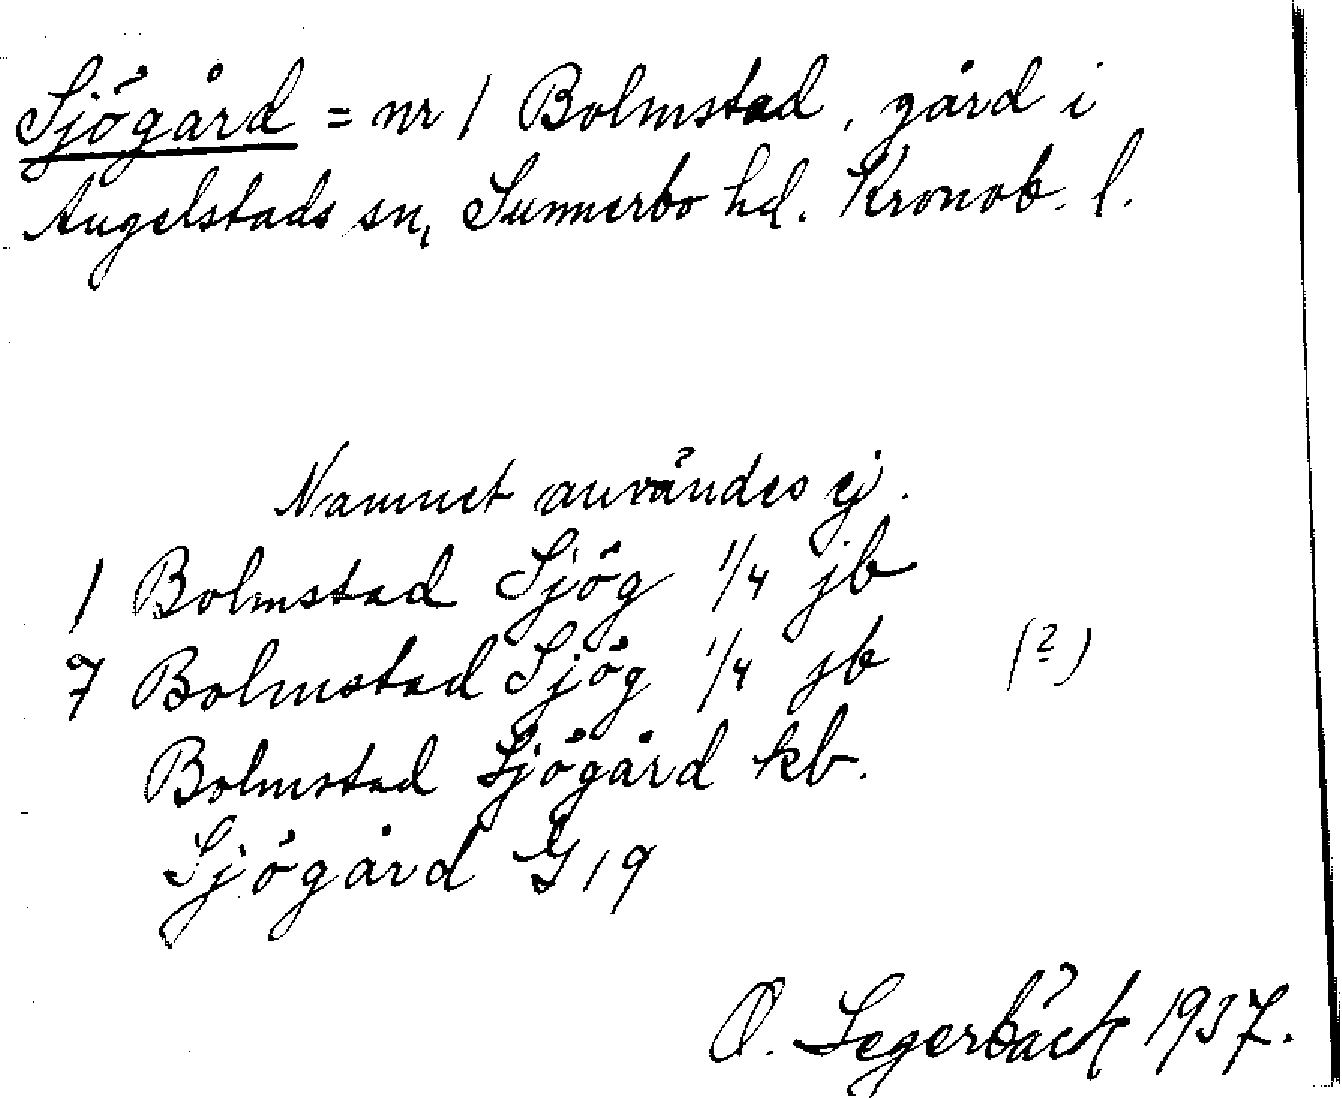 Sjögård = nr 1 Bolmstad, gård i
Angelstads sn, Sunnerbo hd. Kronob. l.
Namnet användes ej.
1 Bolmstad Sjög 1/4 jb
7 Bolmstad Sjög 1/4 jb (?)
Bolmstad Sjögård kb.
Sjögård G 19
O. Segerbäck 1937.